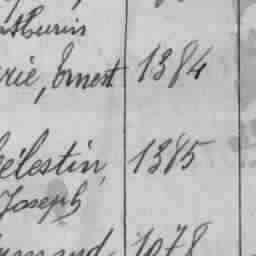 thurin
rie, Ernest 1384
élestin, 1385
Joseph
rmand, 1078